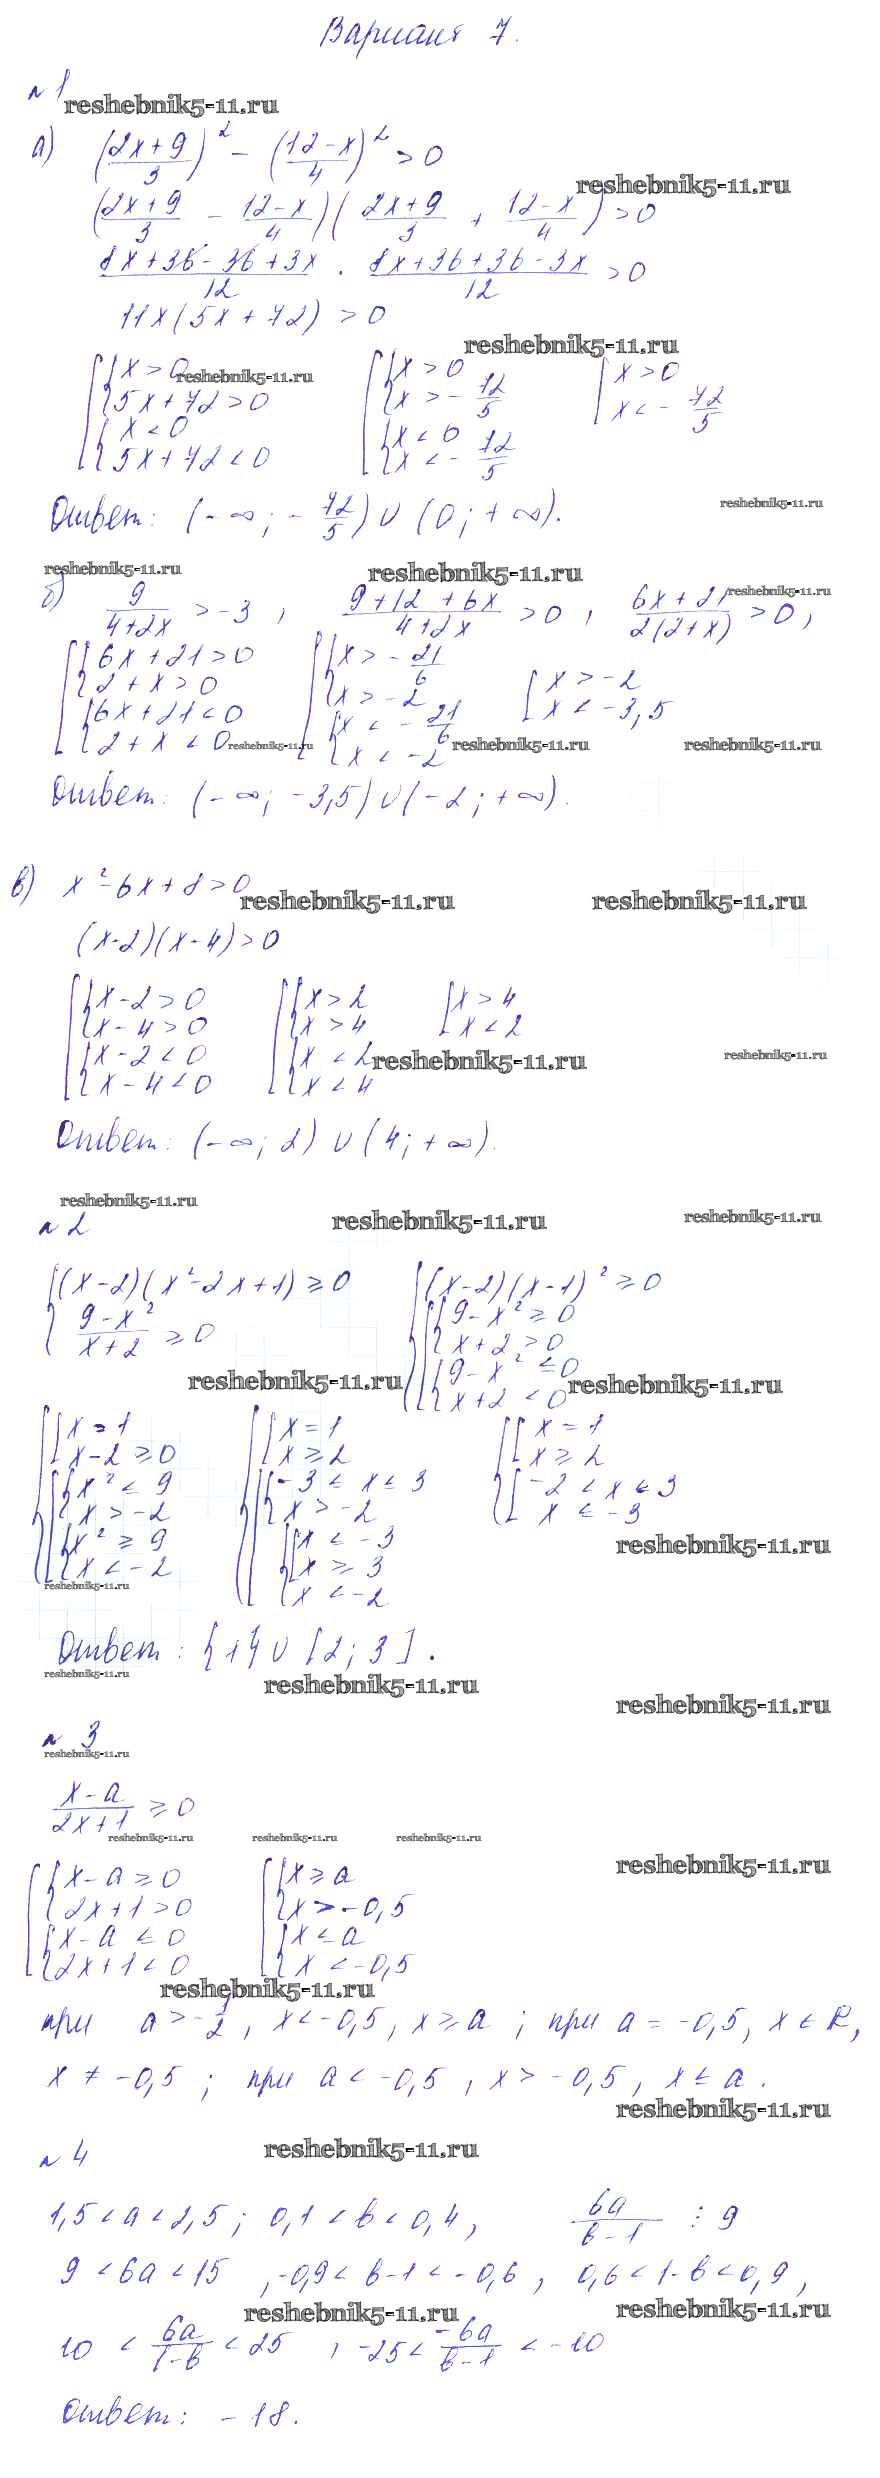 Вариант 7.
№ 1
reshebnik5-11.ru
а) ((2x+9)/3)² - ((12-x)/4)² > 0
reshebnik5-11.ru
((2x+9)/3 - (12-x)/4)((2x+9)/3 + (12-x)/4) > 0
(8x+36-36+3x)/12 · (8x+36+36-3x)/12 > 0
11x(5x+72) > 0
reshebnik5-11.ru
x > 0 x > 0 x > 0
reshebnik5-11.ru
5x+72 > 0 x > -72/5 x < -72/5
x < 0 x < 0
5x+72 < 0 x < -72/5
reshebnik5-11.ru
Ответ: (-∞; -72/5) ∪ (0; +∞).
reshebnik5-11.ru reshebnik5-11.ru
reshebnik5-11.ru
б) 9/(4+2x) > -3, (9+12+6x)/(4+2x) > 0, (6x+21)/(2(2+x)) > 0,
6x+21 > 0 x > -21/6 x > -2
2+x > 0 x > -2 x < -3,5
6x+21 < 0 x < -21/6
2+x < 0 x < -2
reshebnik5-11.ru reshebnik5-11.ru reshebnik5-11.ru
Ответ: (-∞; -3,5) ∪ (-2; +∞).
в) x²-6x+8 > 0
reshebnik5-11.ru reshebnik5-11.ru
(x-2)(x-4) > 0
x-2 > 0 x > 2 x > 4
x-4 > 0 x > 4 x < 2
x-2 < 0 x < 2
reshebnik5-11.ru reshebnik5-11.ru
x-4 < 0 x < 4
Ответ: (-∞; 2) ∪ (4; +∞).
reshebnik5-11.ru
№ 2
reshebnik5-11.ru reshebnik5-11.ru
(x-2)(x²-2x+1) ≥ 0 (x-2)(x-1)² ≥ 0
(9-x²)/(x+2) ≥ 0 9-x² ≥ 0
x+2 > 0
9-x² ≤ 0
reshebnik5-11.ru reshebnik5-11.ru
x+2 < 0
x = 1 x = 1 x = 1
x-2 ≥ 0 x ≥ 2 x ≥ 2
x² ≤ 9 -3 ≤ x ≤ 3 -2 < x ≤ 3
x > -2 x > -2 x ≤ -3
x² ≥ 9 x ≤ -3
reshebnik5-11.ru
x < -2 x ≥ 3
reshebnik5-11.ru
x < -2
Ответ: {1} ∪ [2; 3].
reshebnik5-11.ru
reshebnik5-11.ru
reshebnik5-11.ru
№ 3
reshebnik5-11.ru
(x-a)/(2x+1) ≥ 0
reshebnik5-11.ru reshebnik5-11.ru reshebnik5-11.ru
reshebnik5-11.ru
x-a ≥ 0 x ≥ a
2x+1 > 0 x > -0,5
x-a ≤ 0 x ≤ a
2x+1 < 0 x < -0,5
reshebnik5-11.ru
при a > -1/2, x < -0,5, x ≥ a; при a = -0,5, x ∈ R,
x ≠ -0,5; при a < -0,5, x > -0,5, x ≤ a.
reshebnik5-11.ru
№ 4
reshebnik5-11.ru
1,5 < a < 2,5; 0,1 < b < 0,4, 6a/(b-1) ⋮ 9
9 < 6a < 15, -0,9 < b-1 < -0,6, 0,6 < 1-b < 0,9,
reshebnik5-11.ru reshebnik5-11.ru
10 < 6a/(1-b) < 25, -25 < -6a/(b-1) < -10
Ответ: -18.